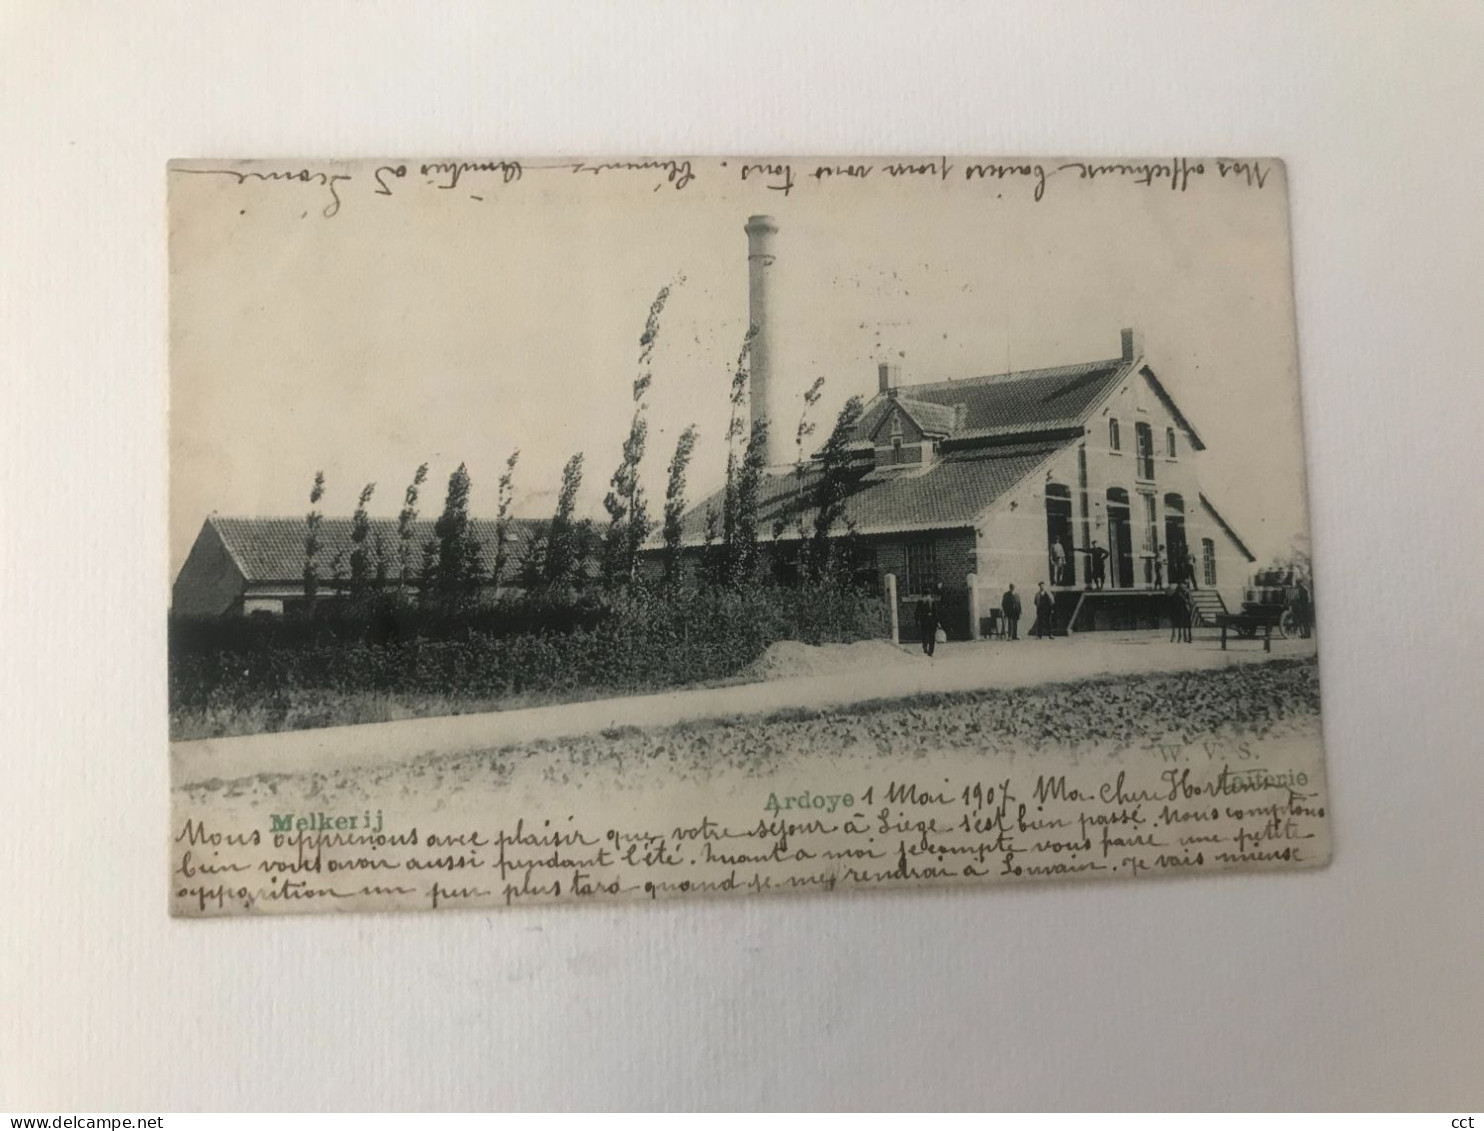 Nos affectueux baisers pour vous tous. Clémence Amitiés à Léonie
W. V. S.
Melkerij Ardoye Laiterie
1 Mai 1907 Ma Chère Hortense
Nous apprenons avec plaisir que votre séjour à Liège s'est bien passé. Nous comptons
bien vous avoir aussi pendant l'été. Quant a moi je compte vous faire une petite
apparition un peu plus tard quand je me rendrai à Louvain. Je vais mieux
www.delcampe.net
cct